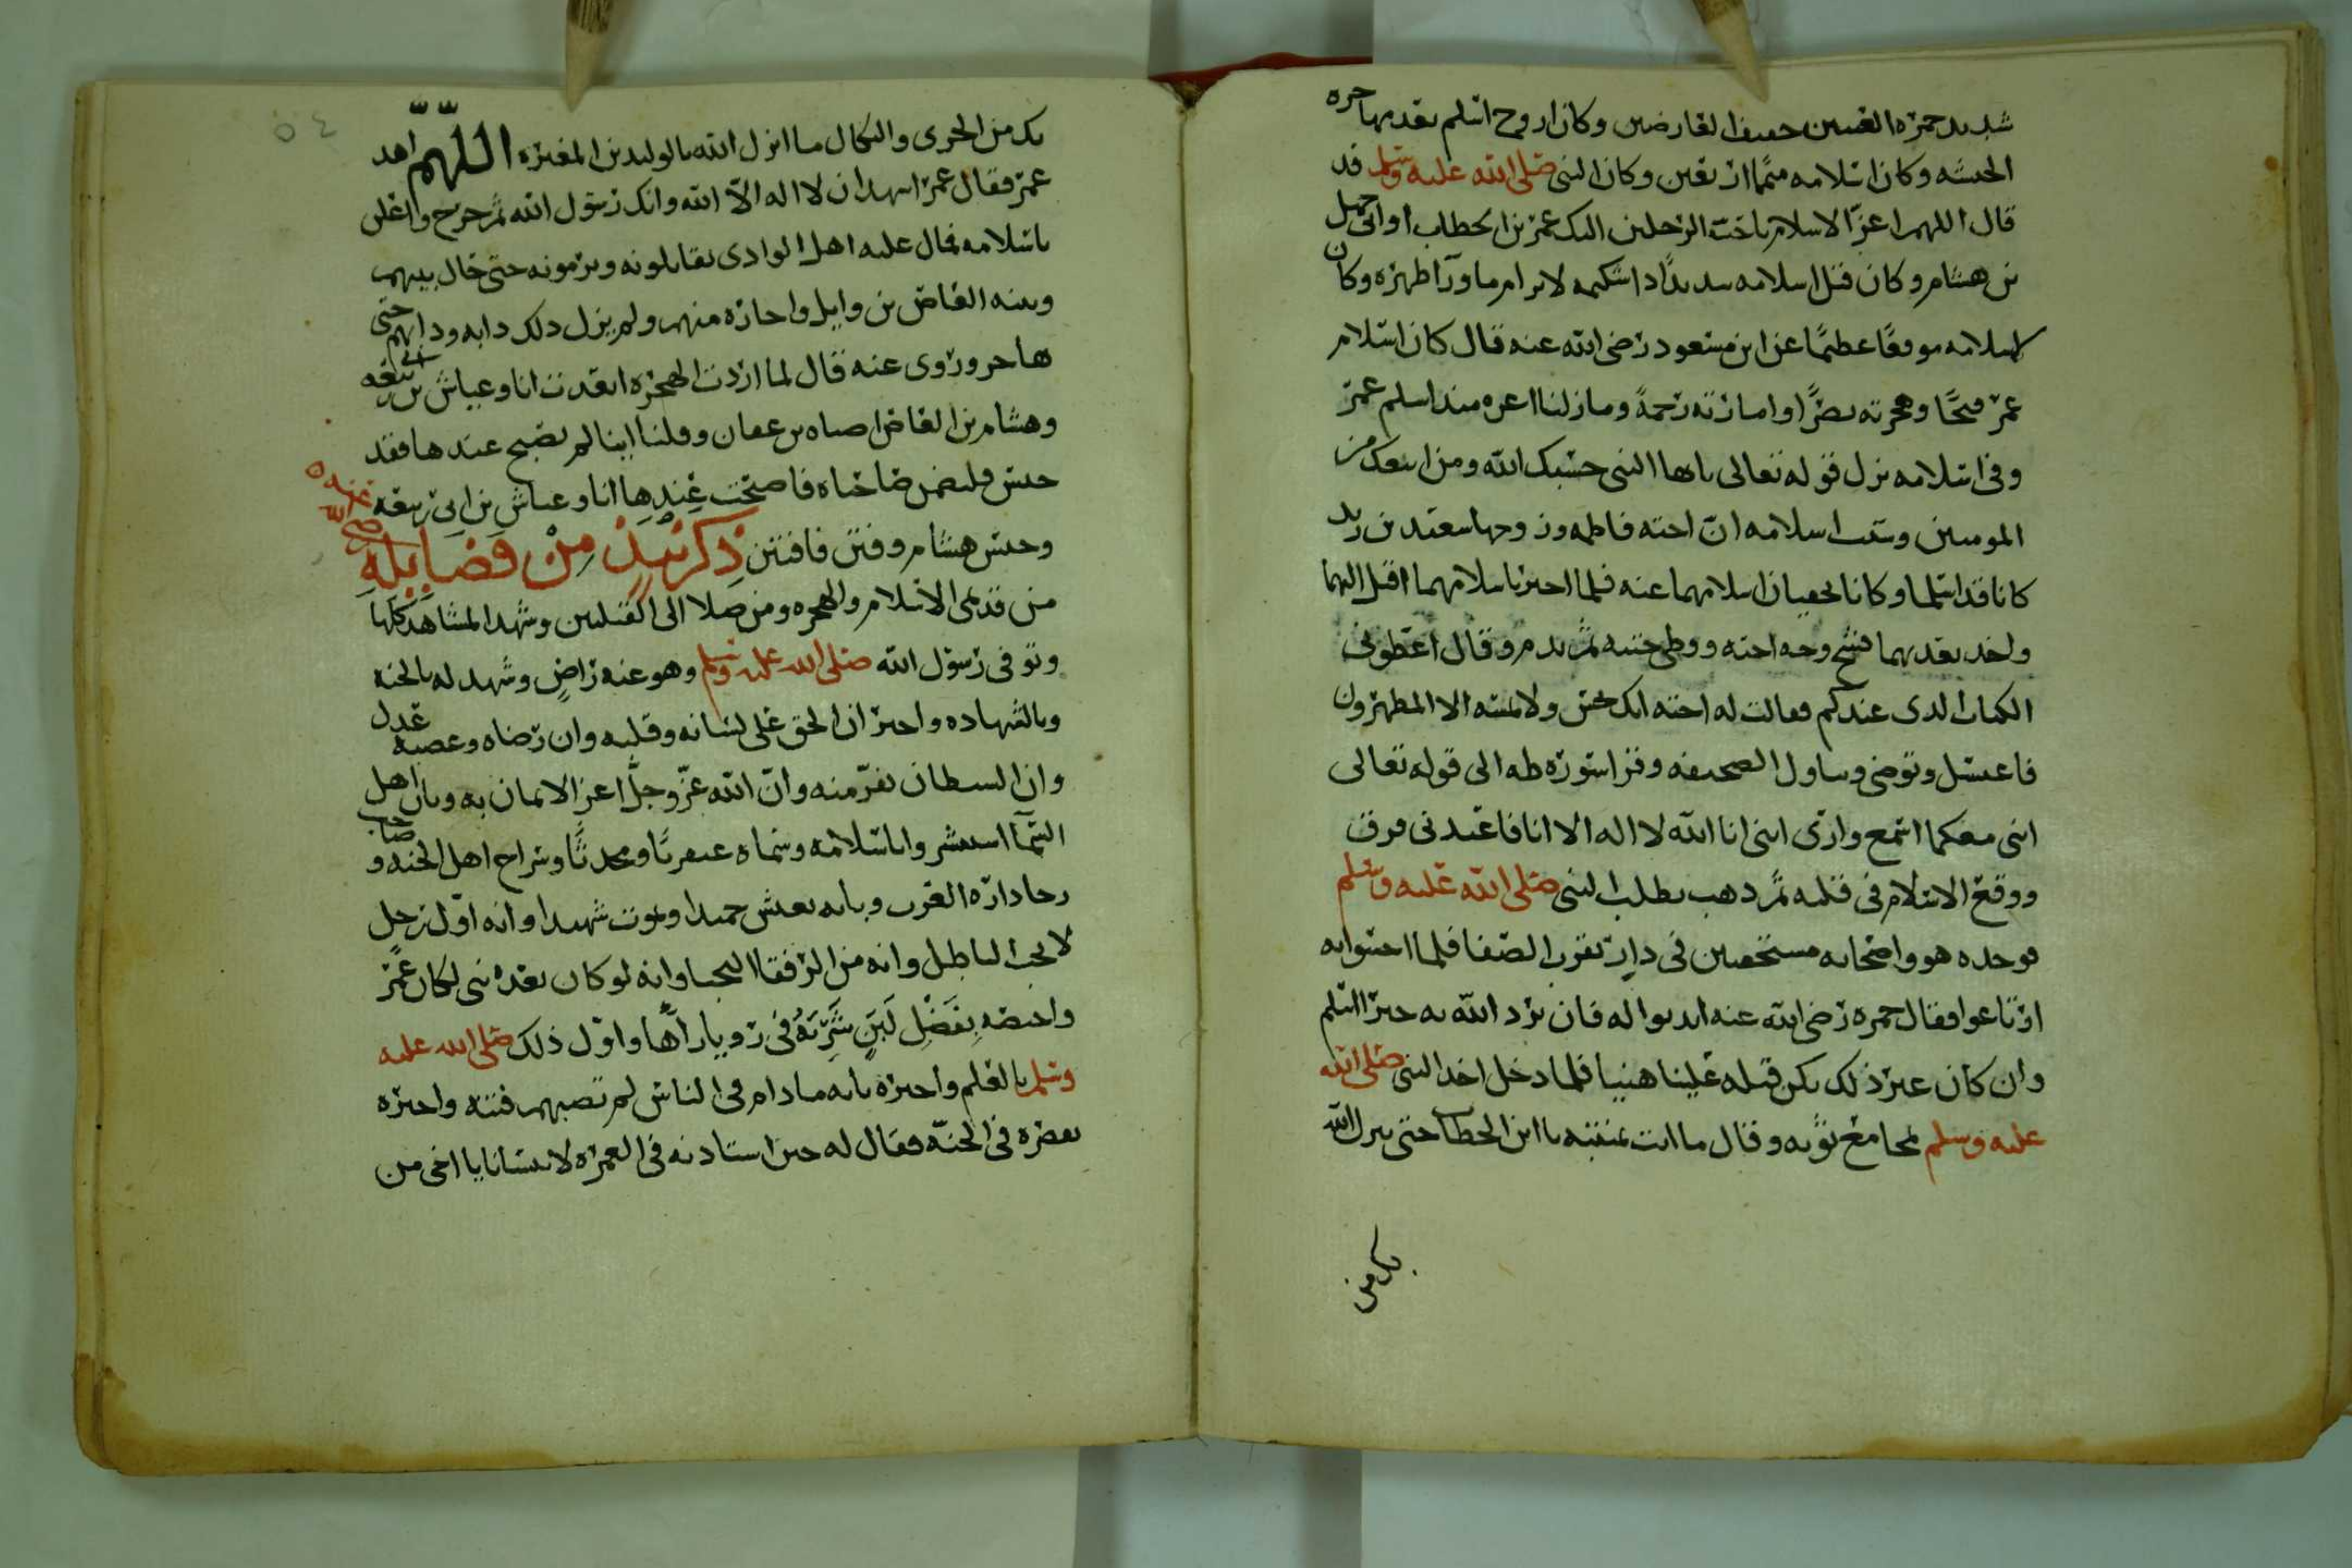 شديد حمرة العينين خفيف العارضين وكان اروح اسلم بعد مهاجره
الحبشه وكان اسلامه متمما اربعين وكان النبي صلى الله عليه وسلم قد
قال اللهم اعز الاسلام باحب الرجلين اليك عمر بن الخطاب او ابي جهل
بن هشام وكان قبل اسلامه شديدًا ذا شكيمه لا يرام ما ورآ ظهره وكان
اسلامه موقعًا عظيمًا عن ابن مسعود رضي الله عنه قال كان اسلام
عمر فتحًا وهجرته نصرًا وامارته رحمةً وما زلنا اعزه منذ اسلم عمر
وفي اسلامه نزل قوله تعالى يا ايها النبي حسبك الله ومن اتبعك من
المومنين وسبب اسلامه انّ اخته فاطمه وزوجها سعيد بن زيد
كانا قد اسلما وكانا يخفيان اسلامهما عنه فلما اخبر باسلامهما اقبل اليهما
واخذ يعذبهما فشج وجه اخته ووطى ختنه ثم ندم وقال اعطوني
الكتاب الذي عندكم فقالت له اخته انك نجس ولا يمسه الا المطهرون
فاغتسل وتوضى وتناول الصحيفه وقرا سورة طه الى قوله تعالى
انني معكما اسمع وارى انني انا الله لا اله الا انا فاعبدني فرق
ووقع الاسلام في قلبه ثم ذهب يطلب النبي صلى الله عليه وسلم
فوجده هو واصحابه مستخفين في دارٍ بقرب الصفا فلما احسوا به
ارتاعوا فقال حمزه رضي الله عنه ايذنوا له فان يرد الله به خيرا اسلم
وان كان غير ذلك يكن قتله علينا هينيا فلما دخل اخذ النبي صلى الله
عليه وسلم بمجامع ثوبه وقال ما انت بمنته يا ابن الخطاب حتى ينزل الله
بك من
بك من الخزى والنكال ما انزل الله بالوليد بن المغيره اللّهمّ اهد
عمر فقال عمر اشهد ان لا اله الاّ الله وانك رسول الله ثم خرج واعلن
باسلامه فمال عليه اهل الوادى يقاتلونه ويرمونه حتى حال بينهم
وبينه العاص بن وايل واجاره منهم ولم يزل ذلك دابه ودابهم حتى
هاجر وروى عنه قال لما اردت الهجره اتعدت انا وعياش بن ابي ربيعه
وهشام بن العاص اضاه بن غفار وقلنا اينا لم يصبح عندها فقد
حبس فليمض صاحباه فاصبحت عِندِها انا وعياش بن ابى ربيعه
وحبس هشام وفتن فافتتن ذِكر نبذ مِن فضايله رضي الله عنه
من قديمى الاسلام والهجره ومن صلا الى القبلتين وشهد المشاهد كلها
وتوفي رسول الله صلى الله عليه وسلم وهو عنه راضٍ وشهد له بالجنه
وبالشهاده واخبر ان الحق على لسانه وقلبه وان رضاه وغضبه عدل
وان الشيطان يفرّ منه وانّ الله عزّ وجلّ اعز الايمان به وبان اهل
السمآ استبشروا باسلامه وسماه عبقريًا ومحدثًا وسراج اهل الجنه وصاحب
رحا دارة العرب وبانه يعيش حميدا ويموت شهيدا وانه اوّل رجل
لا يحب الباطل وانه من الرفقا النجبا وانه لو كان بعده نبي لكان عمر
واختصه بِفَضْلِ لَبَنٍ شَرِبَهُ في رويا رآها واوّل ذلك صلى الله عليه
وسلم بالعلم واخبره بانه ما دام في الناس لم تصبهم فتنه واخبره
بقصره في الجنّه فقال له حين استاذنه في العمره لا تنسانا يا اخى من